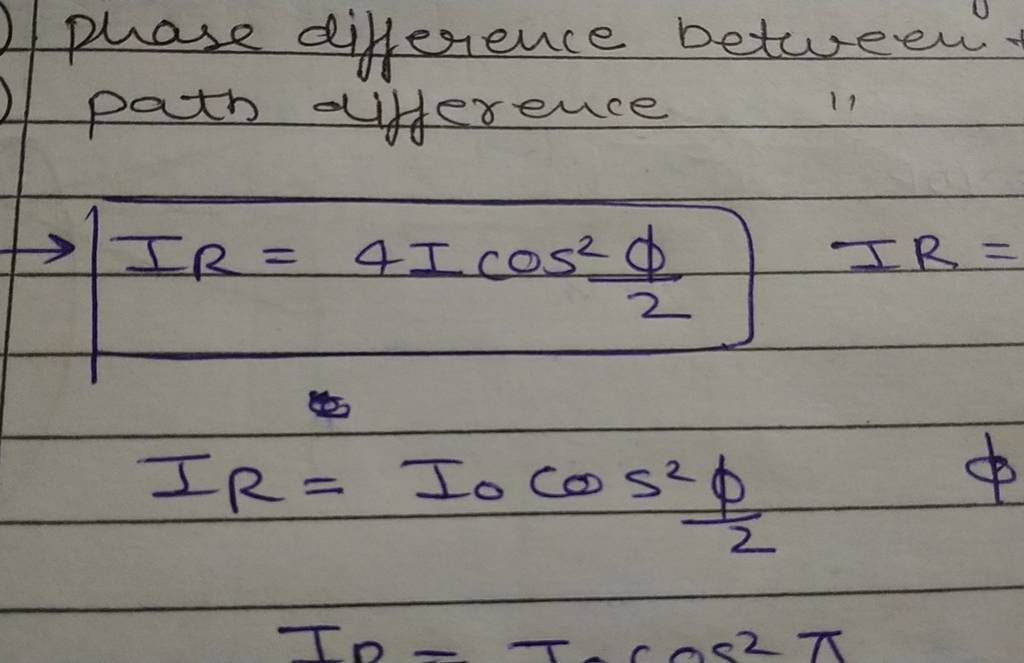 phase difference between
path difference "
→ IR = 4I cos² ϕ/2 IR =
IR = I₀ cos² ϕ/2 ϕ
IR = I₀ cos² π